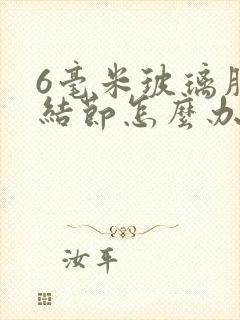 6毫米玻璃
結節怎麼办
汝平